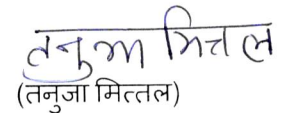 तनुजा मित्तल
(तनुजा मित्तल)